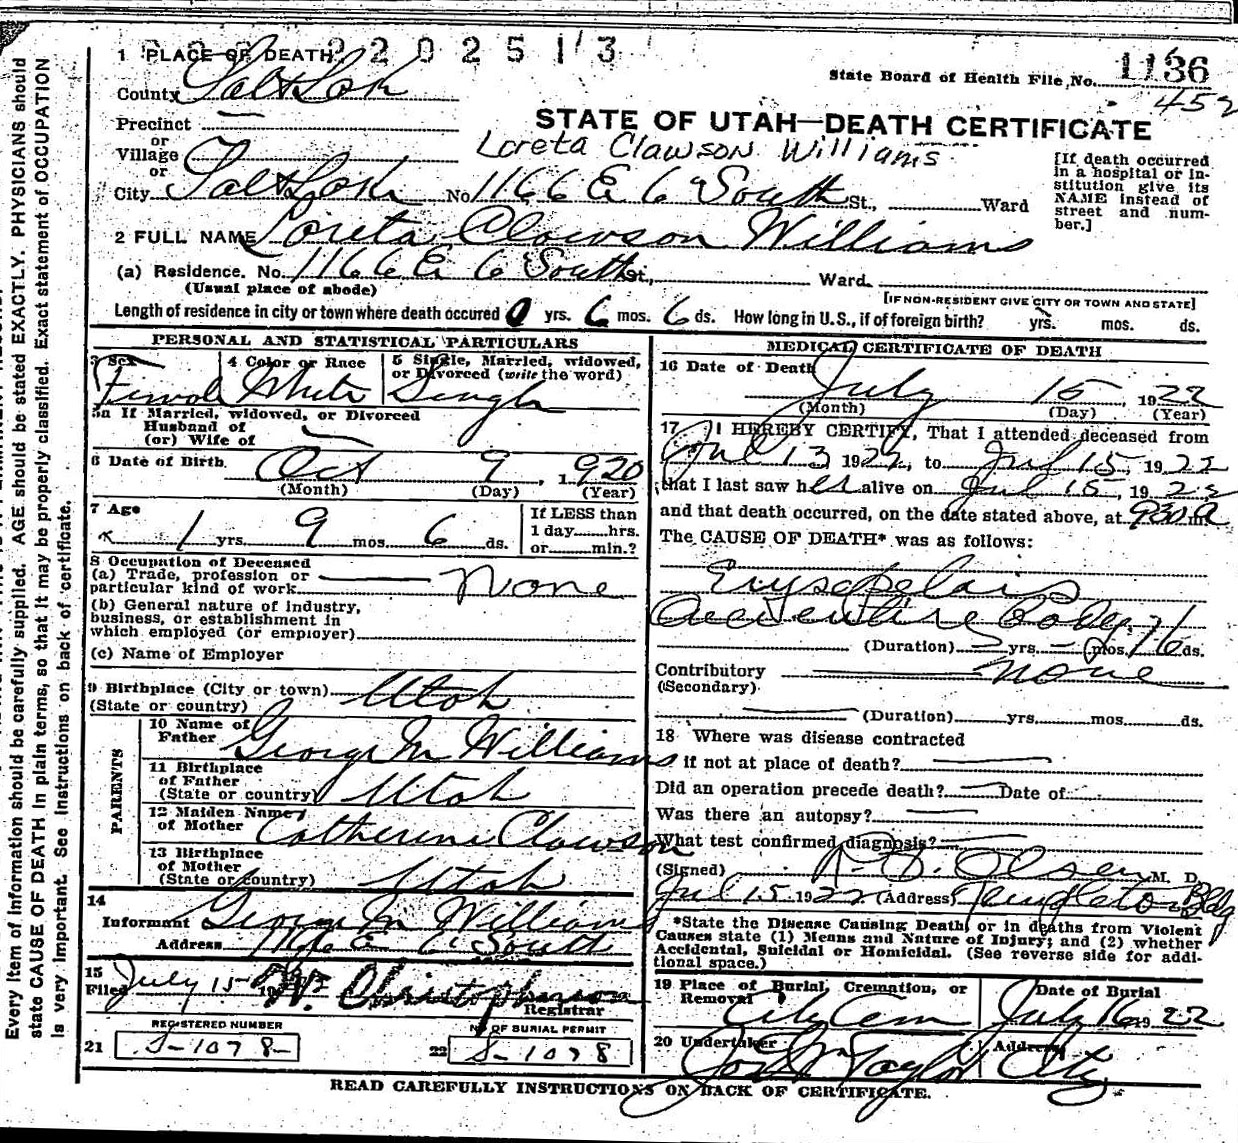 2202513
1 PLACE OF DEATH
State Board of Health File No. 1136
452
County Salt Lake
STATE OF UTAH—DEATH CERTIFICATE
Precinct
or
Village
or
Loreta Clawson Williams
[If death occurred in a hospital or institution give its NAME instead of street and number.]
City Salt Lake No. 1166 E 6 South St., Ward
2 FULL NAME Loreta Clawson Williams
(a) Residence. No. 1166 E 6 South St., Ward.
(Usual place of abode)
[IF NON-RESIDENT GIVE CITY OR TOWN AND STATE]
Length of residence in city or town where death occured 0 yrs. 6 mos. 6 ds. How long in U.S., if of foreign birth? yrs. mos. ds.
PERSONAL AND STATISTICAL PARTICULARS
3 Sex 4 Color or Race 5 Single, Married, widowed, or Divorced (write the word)
Female White Single
5a If Married, widowed, or Divorced
Husband of
(or) Wife of
6 Date of Birth Oct 9, 1920
(Month) (Day) (Year)
7 Age 1 yrs. 9 mos. 6 ds.
If LESS than
1 day hrs.
or min.?
8 Occupation of Deceased
(a) Trade, profession or
particular kind of work None
(b) General nature of industry,
business, or establishment in
which employed (or employer)
(c) Name of Employer
9 Birthplace (City or town) Utah
(State or country)
PARENTS
10 Name of
Father George M Williams
11 Birthplace
of Father
(State or country) Utah
12 Maiden Name
of Mother Catherine Clawson
13 Birthplace
of Mother
(State or country) Utah
14
Informant George M Williams
Address E 6 South
15
Filed July 15 Christopherson
Registrar
REGISTERED NUMBER NO OF BURIAL PERMIT
21 S-1078 22 S-1078
MEDICAL CERTIFICATE OF DEATH
16 Date of Death July 15, 1922
(Month) (Day) (Year)
17 I HEREBY CERTIFY, That I attended deceased from
Jul 13 1922, to Jul 15, 1922
that I last saw her alive on Jul 15, 1922
and that death occurred, on the date stated above, at 930 a m.
The CAUSE OF DEATH* was as follows:
Erysepelais
entire Body
(Duration) yrs. mos. 16 ds.
Contributory none
(Secondary)
(Duration) yrs. mos. ds.
18 Where was disease contracted
if not at place of death?
Did an operation precede death? Date of
Was there an autopsy?
What test confirmed diagnosis?
(Signed) Olsen, M. D.
Jul 15 1922 (Address) Templeton Bldg
*State the Disease Causing Death, or in deaths from Violent
Causes state (1) Means and Nature of Injury; and (2) whether
Accidental, Suicidal or Homicidal. (See reverse side for addi-
tional space.)
19 Place of Burial, Cremation, or Removal Date of Burial
City Cem July 16 1922
20 Undertaker Address
Jos Wm Taylor City
READ CAREFULLY INSTRUCTIONS ON BACK OF CERTIFICATE.
Every item of information should be carefully supplied. AGE should be stated EXACTLY. PHYSICIANS should
state CAUSE OF DEATH in plain terms, so that it may be properly classified. Exact statement of OCCUPATION
is very important. See instructions on back of certificate.